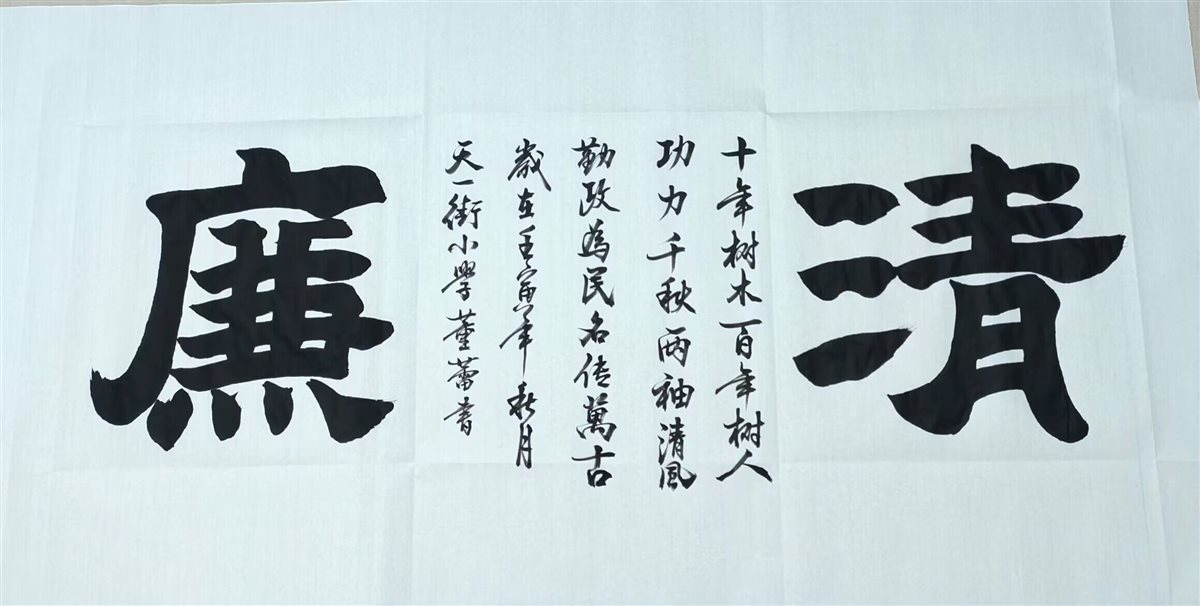 清
十年树木百年树人
功力千秋两袖清风
勤政為民名传萬古
歲在壬寅年秋月
天一街小學董蕾書
廉